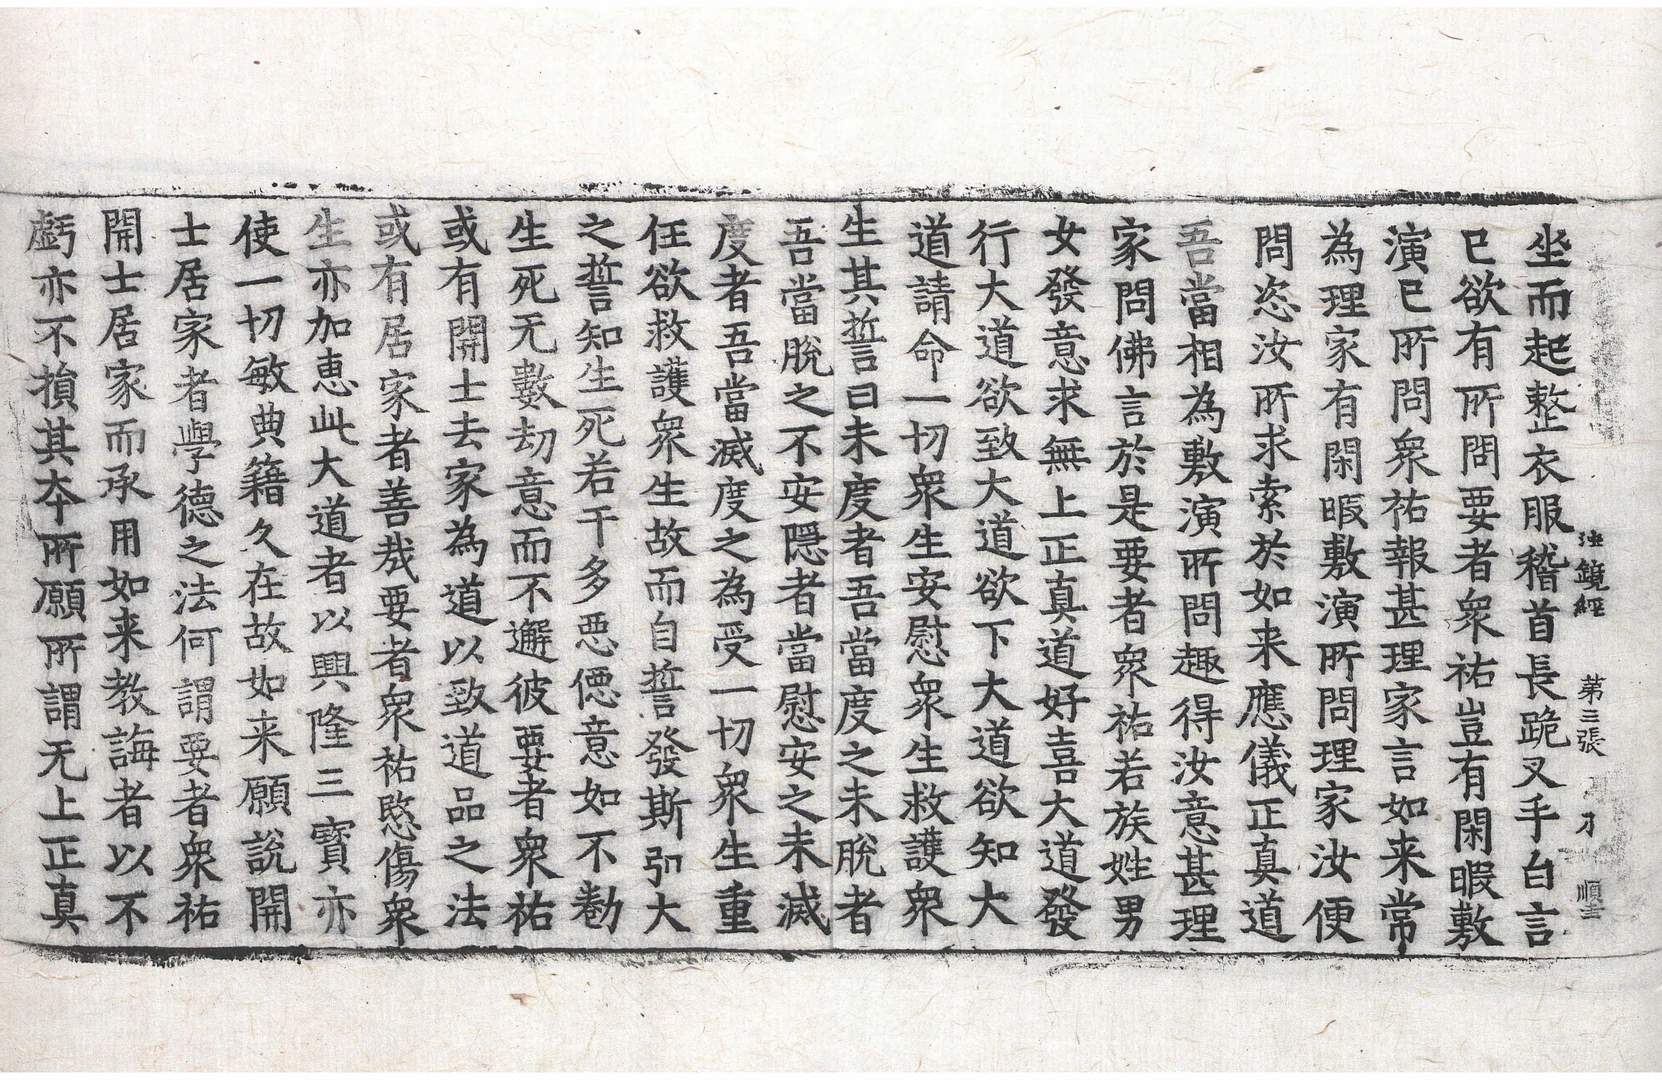 法鏡經 第三張 才 順吉
坐而起整衣服稽首長跪叉手白言
已欲有所問要者衆祐豈有閑暇敷
演已所問衆祐報甚理家言如来常
為理家有閑暇敷演所問理家汝便
問恣汝所求索於如来應儀正真道
吾當相為敷演所問趣得汝意甚理
家問佛言於是要者衆祐若族姓男
女發意求無上正真道好喜大道發
行大道欲致大道欲下大道欲知大
道請命一切衆生安慰衆生救護衆
生其誓曰未度者吾當度之未脫者
吾當脫之不安隱者當慰安之未滅
度者吾當滅度之為受一切衆生重
任欲救護衆生故而自誓發斯弘大
之誓知生死若干多悪僫意如不勌
生死无數劫意而不邂彼要者衆祐
或有開士去家為道以致道品之法
或有居家者善哉要者衆祐愍傷衆
生亦加恵此大道者以興隆三寶亦
使一切敏典籍久在故如来願說開
士居家者學德之法何謂要者衆祐
開士居家而承用如来教誨者以不
虧亦不損其夲所願所謂无上正真